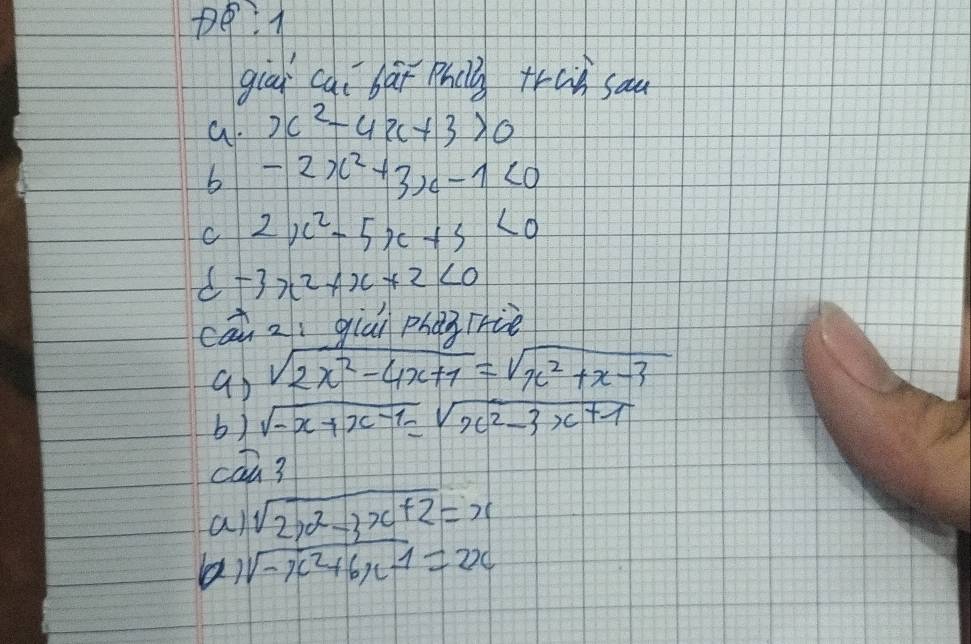 Đề: 1
giải các bất Phương trình sau
a. x² - 4x + 3 > 0
b - 2x² + 3x - 1 < 0
c 2x² - 5x + 3 < 0
d -3x² + x + 2 < 0
câu 2: giải phương trình
a) √(2x² - 4x + 1) = √(x² + x - 3)
b) √(-x + x - 1) = √(x² - 3x + 1)
câu 3
a) √(2x² - 3x + 2) = x
b) √(-x² + 6x - 1) = 2x